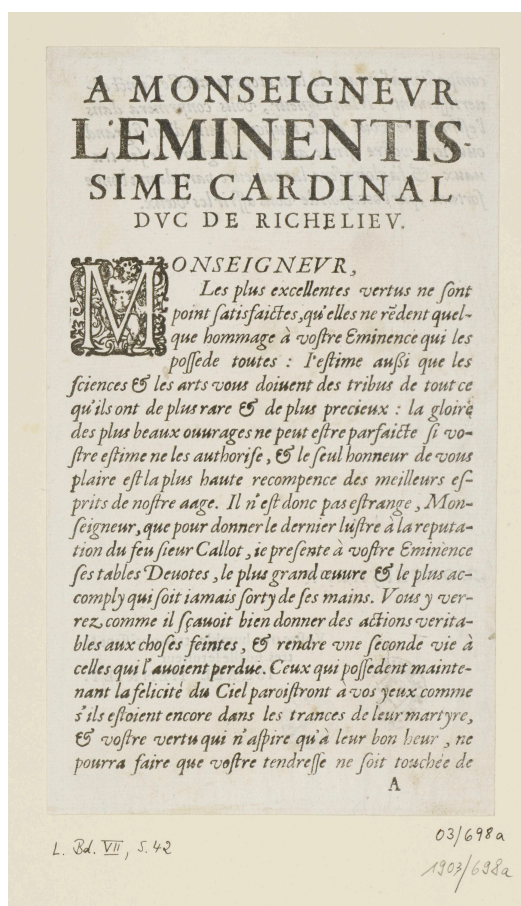 A MONSEIGNEVR
L'EMINENTIS-
SIME CARDINAL
DVC DE RICHELIEV.
MONSEIGNEVR,
Les plus excellentes vertus ne ſont
point ſatisfaictes, qu'elles ne rēdent quel-
que hommage à voſtre Eminence qui les
poſſede toutes : I'eſtime auſſi que les
ſciences & les arts vous doiuent des tribus de tout ce
qu'ils ont de plus rare & de plus precieux : la gloire
des plus beaux ouurages ne peut eſtre parfaicte ſi vo-
ſtre eſtime ne les authoriſe, & le ſeul honneur de vous
plaire eſt la plus haute recompence des meilleurs eſ-
prits de noſtre aage. Il n'eſt donc pas eſtrange, Mon-
ſeigneur, que pour donner le dernier luſtre à la reputa-
tion du feu ſieur Callot, ie preſente à voſtre Eminence
ſes tables Deuotes, le plus grand œuure & le plus ac-
comply qui ſoit iamais ſorty de ſes mains. Vous y ver-
rez, comme il ſçauoit bien donner des actions verita-
bles aux choſes feintes, & rendre vne ſeconde vie à
celles qui l'auoient perdue. Ceux qui poſſedent mainte-
nant la felicité du Ciel paroiſtront a vos yeux comme
s'ils eſtoient encore dans les trances de leur martyre,
& voſtre vertu qui n'aſpire qu'à leur bon heur, ne
pourra faire que voſtre tendreſſe ne ſoit touchée de
A
L. Bd. VII, S. 42
03/698a
1903/698a